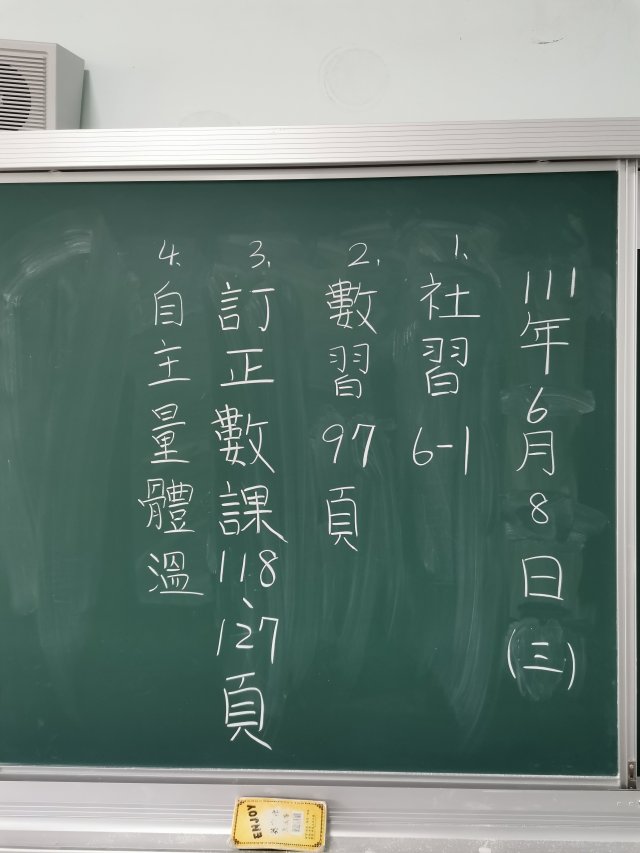 111年6月8日(三)
1. 社習6-1
2. 數習97頁
3. 訂正數課118、127頁
4. 自主量體溫
ENJOY